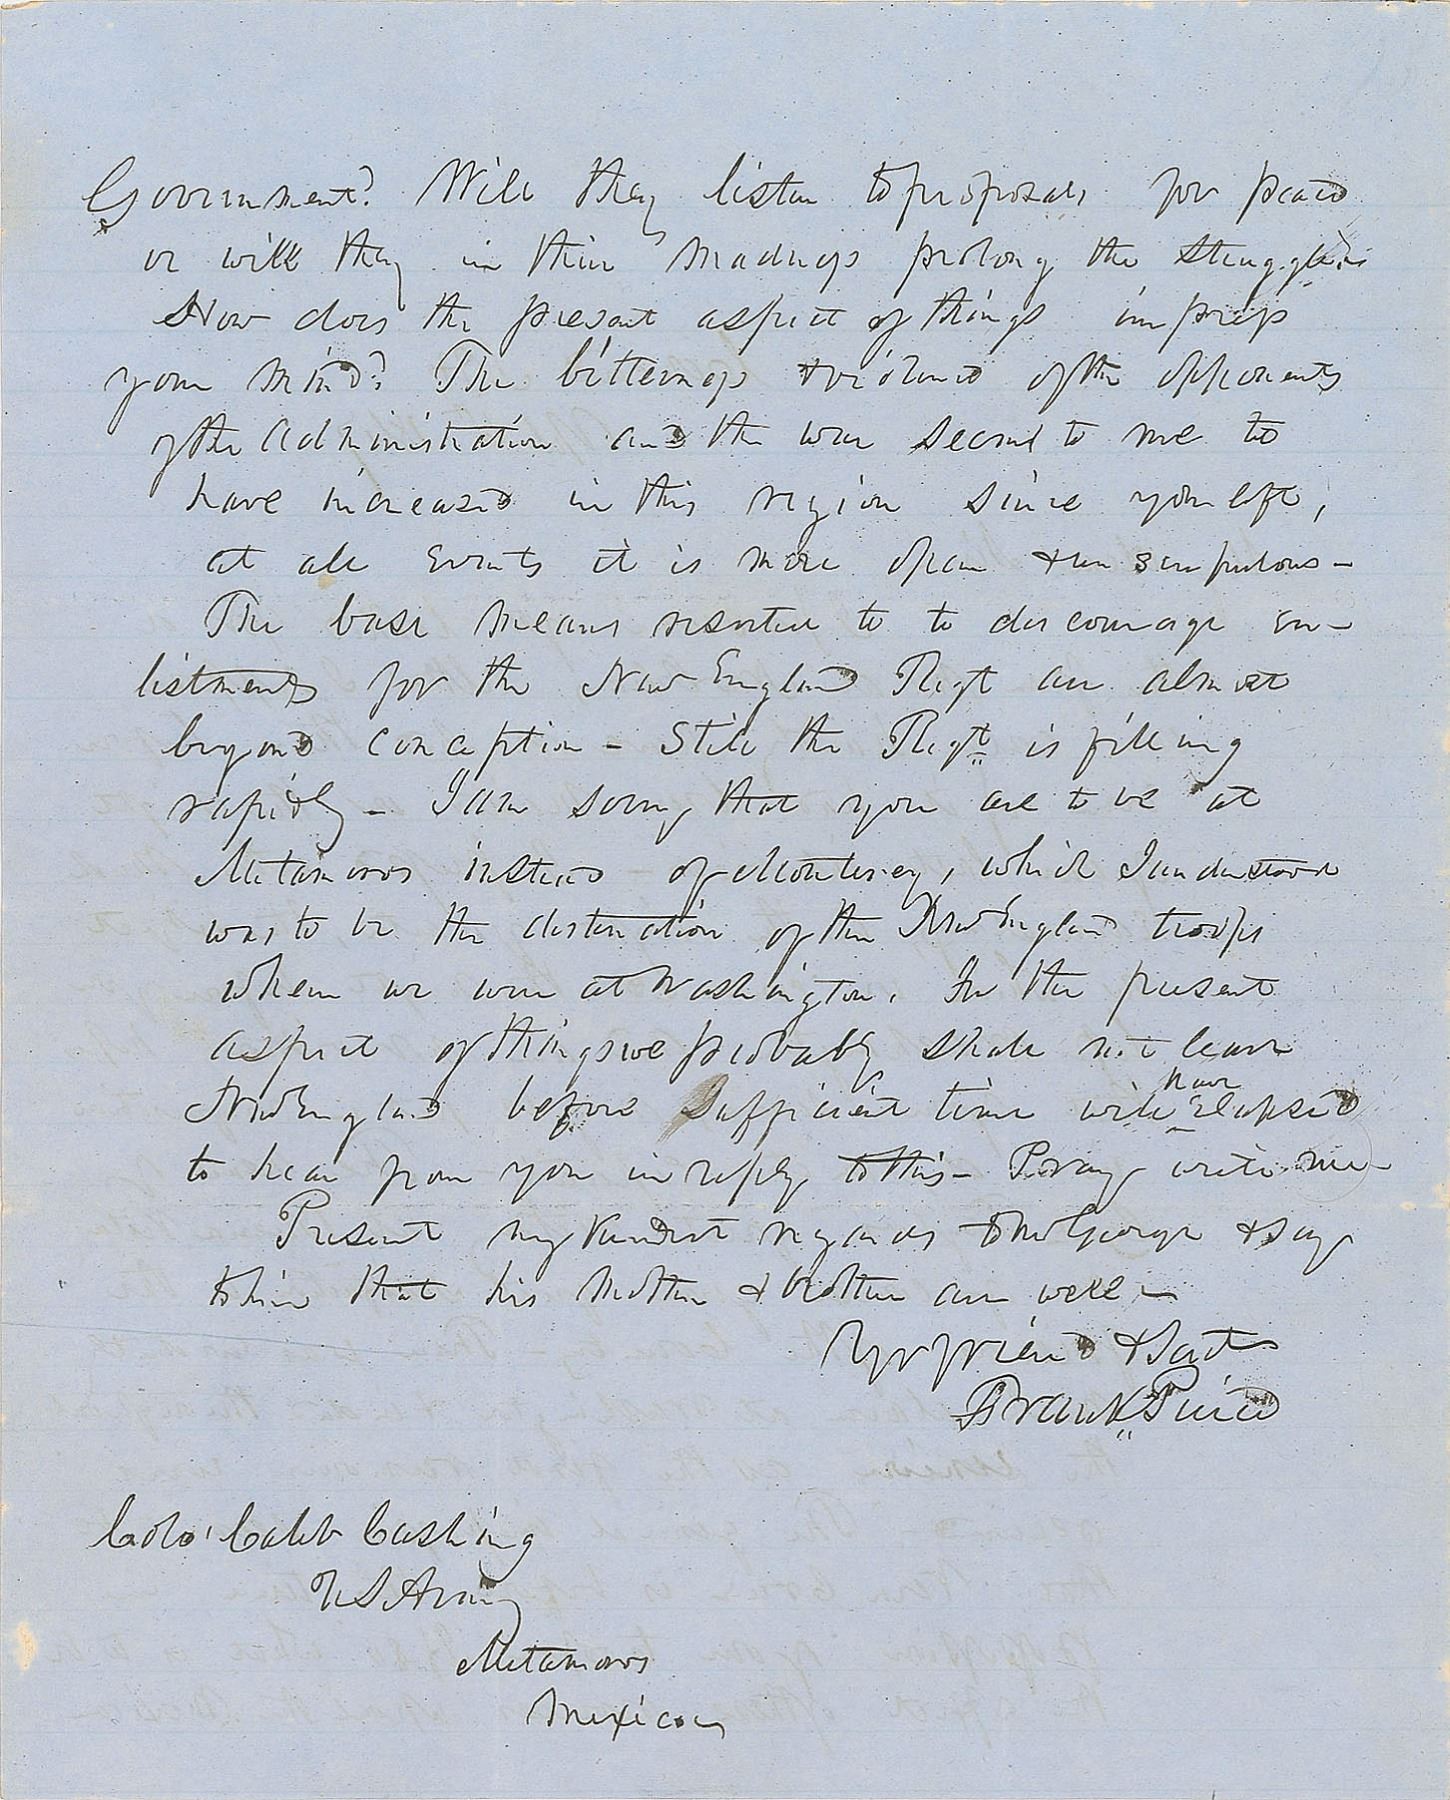 Government? Will they listen to proposals for peace
or will they in their madness prolong the struggle?
How does the present aspect of things impress
your mind? The bitterness & violence of the opponents
of the Administration and the war seems to me to
have increased in this region since you left,
at all events it is more open & unscrupulous -
The base means resorted to to discourage en-
listments for the New England Regt are almost
beyond conception - Still the Regt is filling
rapidly - I am sorry that you are to be at
Matamoros instead of Monterey, which I understood
was to be the destination of the New England troops
when we were at Washington. In the present
aspect of things we probably shall not leave
New England before sufficient time will have elapsed
to hear from you in reply to this - Pray write me -
Present my kindest regards to Mr George & say
to him that his Mother & brother are well -
Yr friend & Sert
Frank Pierce
Colo. Caleb Cushing
U S Army
Matamoros
Mexico